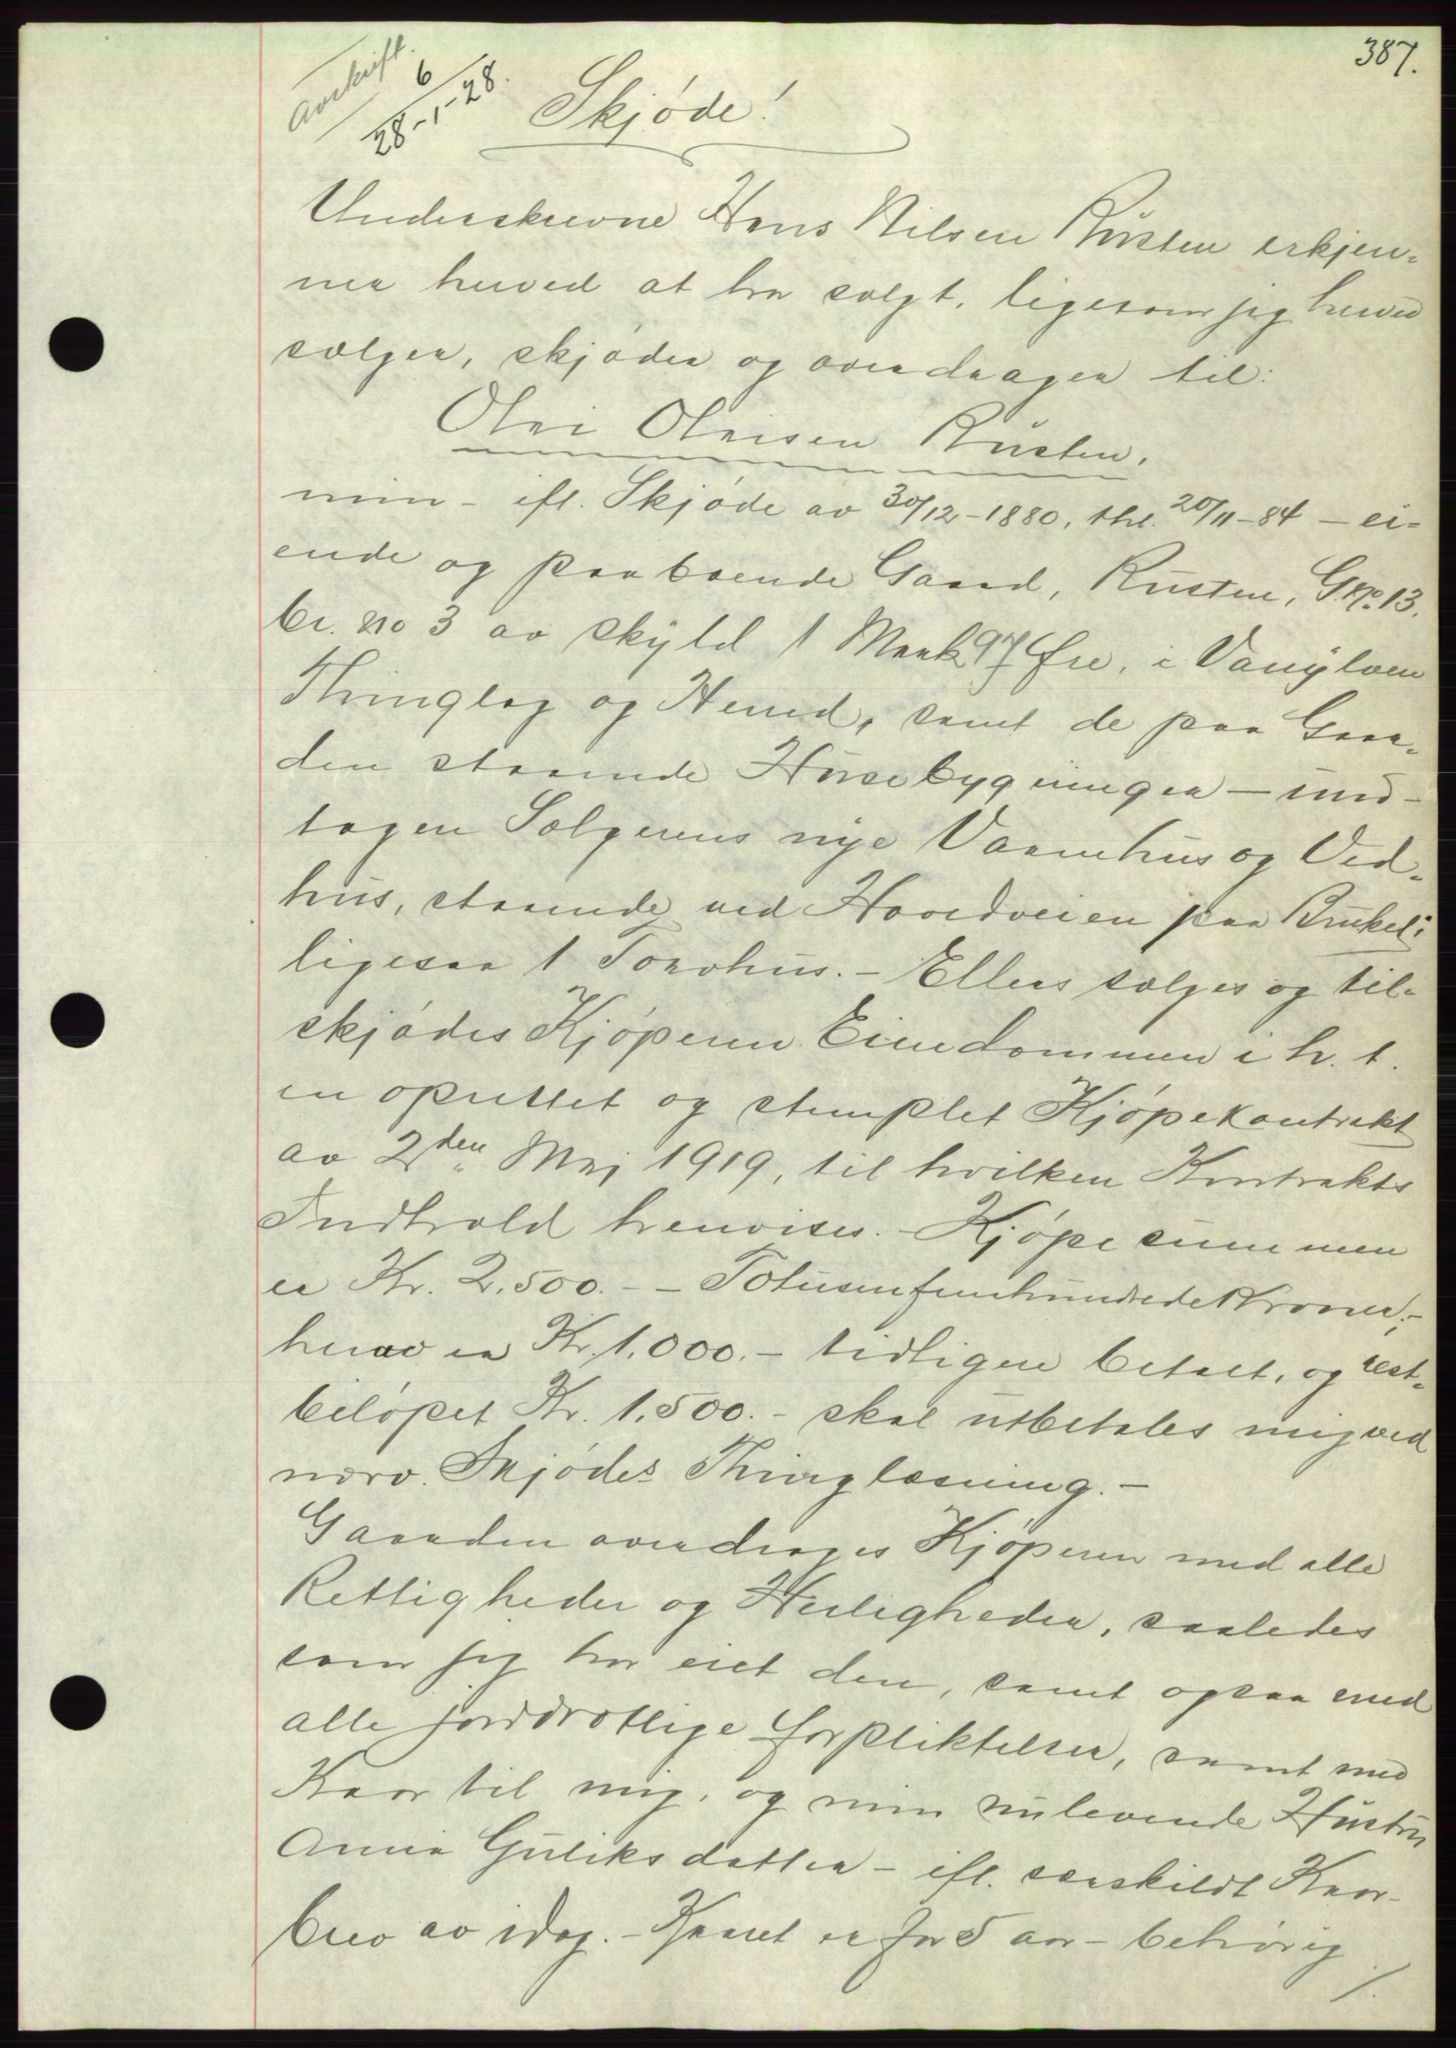 387.
Avskrift.
6
28-1-28.
Skjøde!
Underskrevne Hans Nilsen Rusten erkjen-
ner herved at ha solgt, ligesom jeg herved
sælger, skjøder og overdrager til:
Olai Olaisen Rusten,
min - ifl. Skjøde av 30/12-1880, thl. 20/11-84 - ei-
ende og paaboende Gaard, Rusten, G.No. 13.
br. no 3 av skyld 1 Mark 97 Øre, i Vanylven
Thinglag og Herred, samt de paa Gaar-
den staaende Husebygninger - und-
tagen Sælgerens nye Vaanehus og Ved-
hus, staaende ved Hovedveien paa
ligesaa 1 . - Ellers sælges og til-
skjødes Kjøperen Eiendommen i h. t.
en oprettet og stemplet Kjøpekontrakt
av 2den Maj 1919, til hvilken Kontrakts
Indhold henvises. - Kjøpesummen
er Kr. 2,500. - - Totusenfemhundrede Kroner;-
herav er Kr. 1,000. - tidligere betalt, og rest-
beløpet Kr. 1,500. - skal utbetales mig ved
nærv. Skjødes Thinglæsning. -
Gaarden overdrages Kjøperen med alle
Rettigheder og Herligheder, saaledes
som jeg har eiet den, samt ogsaa med
alle jorddrotlige forpliktelser, samt med
Kaar til mig, og min nulevende Hustru
Anna Guliksdatter - ifl. særskildt Kaar-
brev av idag. - Kaaret er for 5 aar - behørig
/.